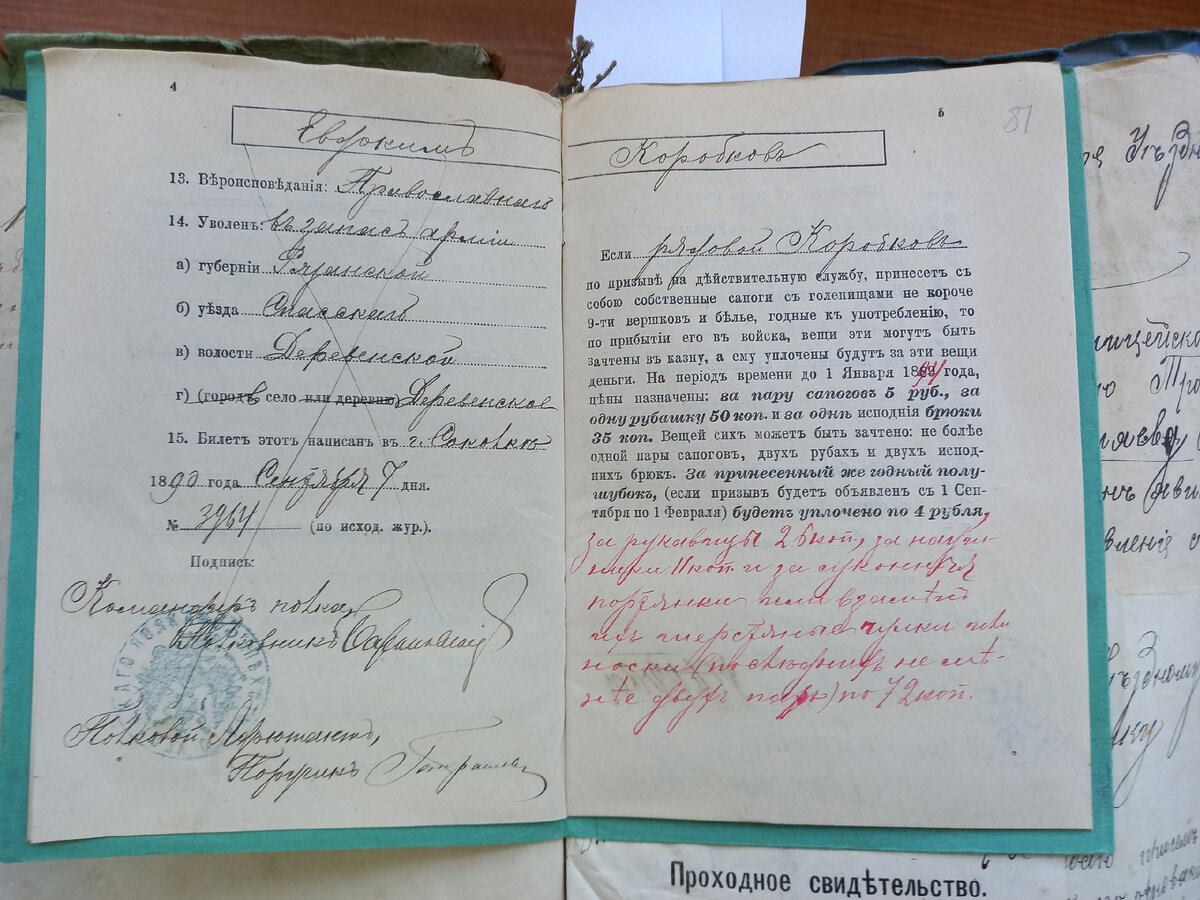 4
Евдокимъ
13. Вѣроисповѣданія: Православнаго
14. Уволенъ: въ запасъ арміи
а) губерніи Рязанской
б) уѣзда Спасскаго
в) волости Деревенской
г) (городъ село или деревню) Деревенское
15. Билетъ этотъ написанъ въ г.
1890 года Сентября 7 дня.
№ 3964 (по исход. жур.).
Подпись:
Командиръ полка,
Полковникъ
Полковой Адъютантъ,
Поручикъ
5
81
Коробковъ
Если рядовой Коробковъ
по призывѣ на дѣйствительную службу, принесетъ съ
собою собственные сапоги съ голенищами не короче
9-ти вершковъ и бѣлье, годные къ употребленію, то
по прибытіи его въ войска, вещи эти могутъ быть
зачтены въ казну, а ему уплочены будутъ за эти вещи
деньги. На періодъ времени до 1 Января 1891 года,
цѣны назначены: за пару сапоговъ 5 руб., за
одну рубашку 50 коп. и за однѣ исподнія брюки
35 коп. Вещей сихъ можетъ быть зачтено: не болѣе
одной пары сапоговъ, двухъ рубахъ и двухъ испод-
нихъ брюкъ. За принесенный же годный полу-
шубокъ, (если призывъ будетъ объявленъ съ 1 Сен-
тября по 1 Февраля) будетъ уплочено по 4 рубля,
за рукавицы 26 коп., за науш-
ники 11 коп. и за суконныя
портянки или взамѣнъ
ихъ шерстяные чулки или
носки (послѣднихъ не ме-
нѣе двухъ паръ) по 72 коп.
Проходное свидѣтельство.